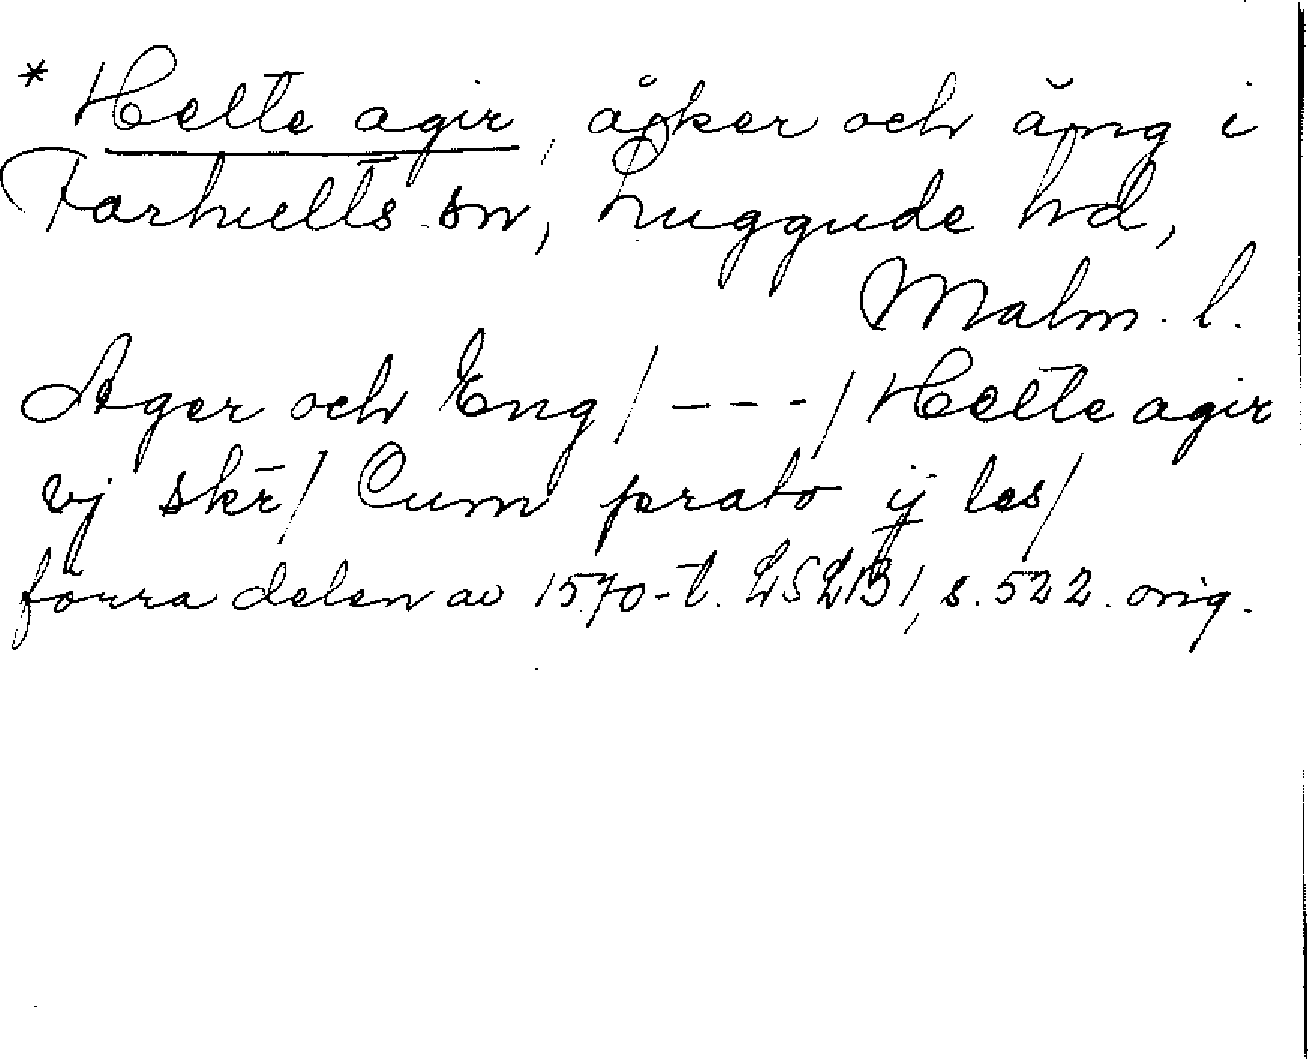 * Helte agir, åker och äng i
Farhults sn, Luggude hd,
Malm. l.
Ager och Eng / - - - / Helte agir
vj skr̄ / Cum prato ij les /
förra delen av 1570-t. LSLB1, s. 522. orig.